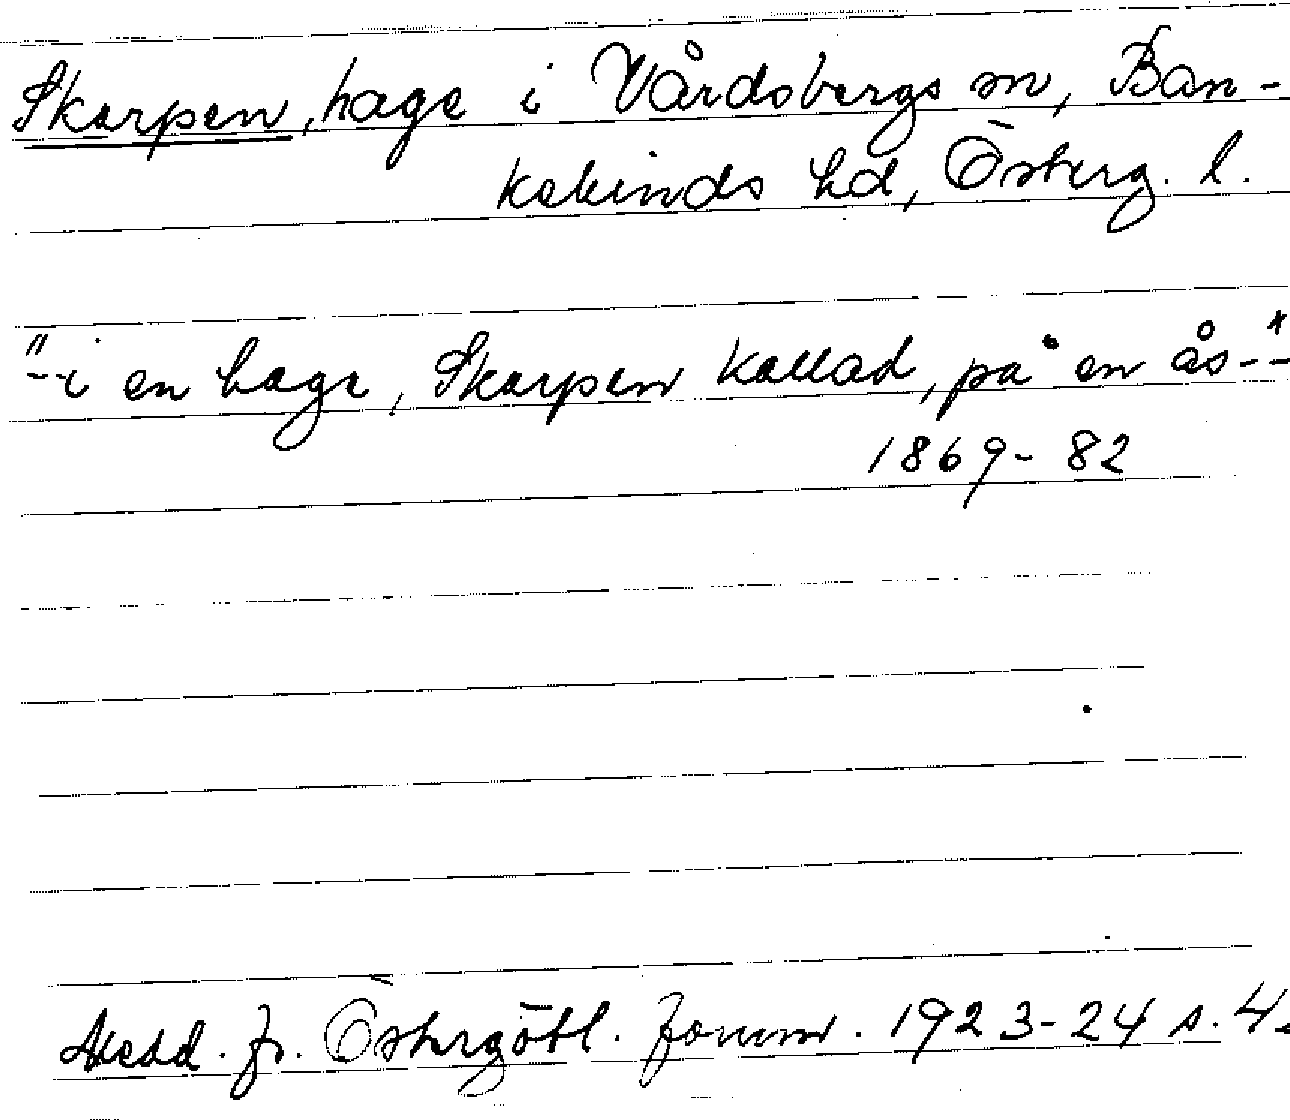 Skarpen, hage i Vårdsbergs sn, Ban-
kekinds hd, Österg. l.
"--i en hage, Skarpen kallad, på en ås--"
1869-82
Medd. fr. Östergötl. fornm. 1923-24 s. 4